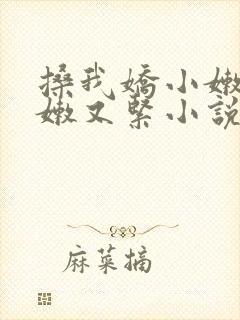 搡我嬌小嫩
嫩又緊小說
麻菜摘